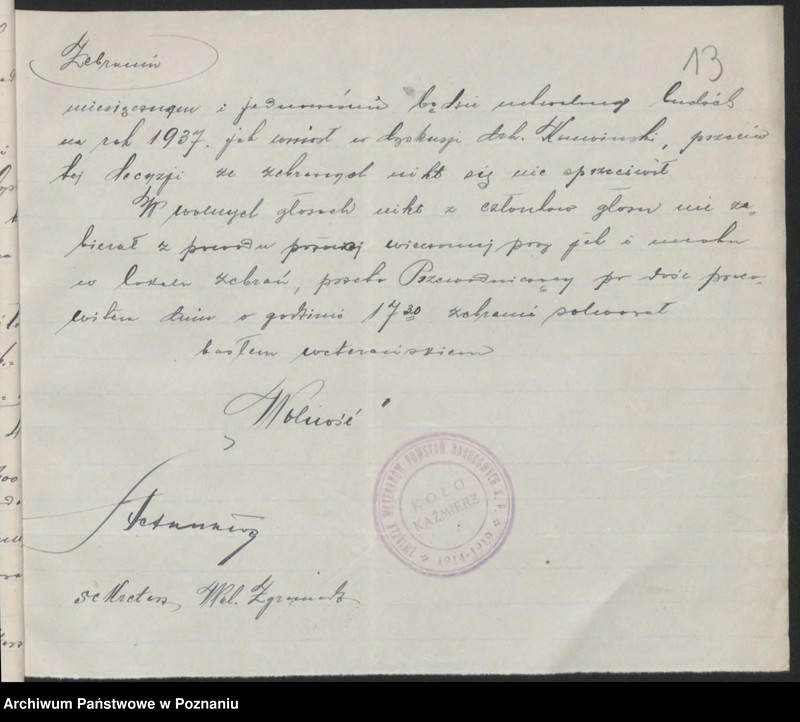 13
Zebrania
miesięcznym i jednocześnie będzie uchwalony budżet
na rok 1937. jak wniósł w dyskusji drh. przeciw
tej decyzji ze zebranych nikt się nie sprzeciwił
W wolnych głosach nikt z członków głosu nie za-
bierał z powodu późnej wieczornej pory jak i mroku
w lokalu zebrań, przeto Przewodniczący po dość praco-
witem dniu o godzinie 17 30 zebranie solwował
hasłem weterańskiem
"Wolność"
sekretarz Wal.
ZWIĄZEK WETERANÓW POWSTAŃ NARODOWYCH R. P.
KOŁO
KAŹMIERZ
1914-1919
Archiwum Państwowe w Poznaniu